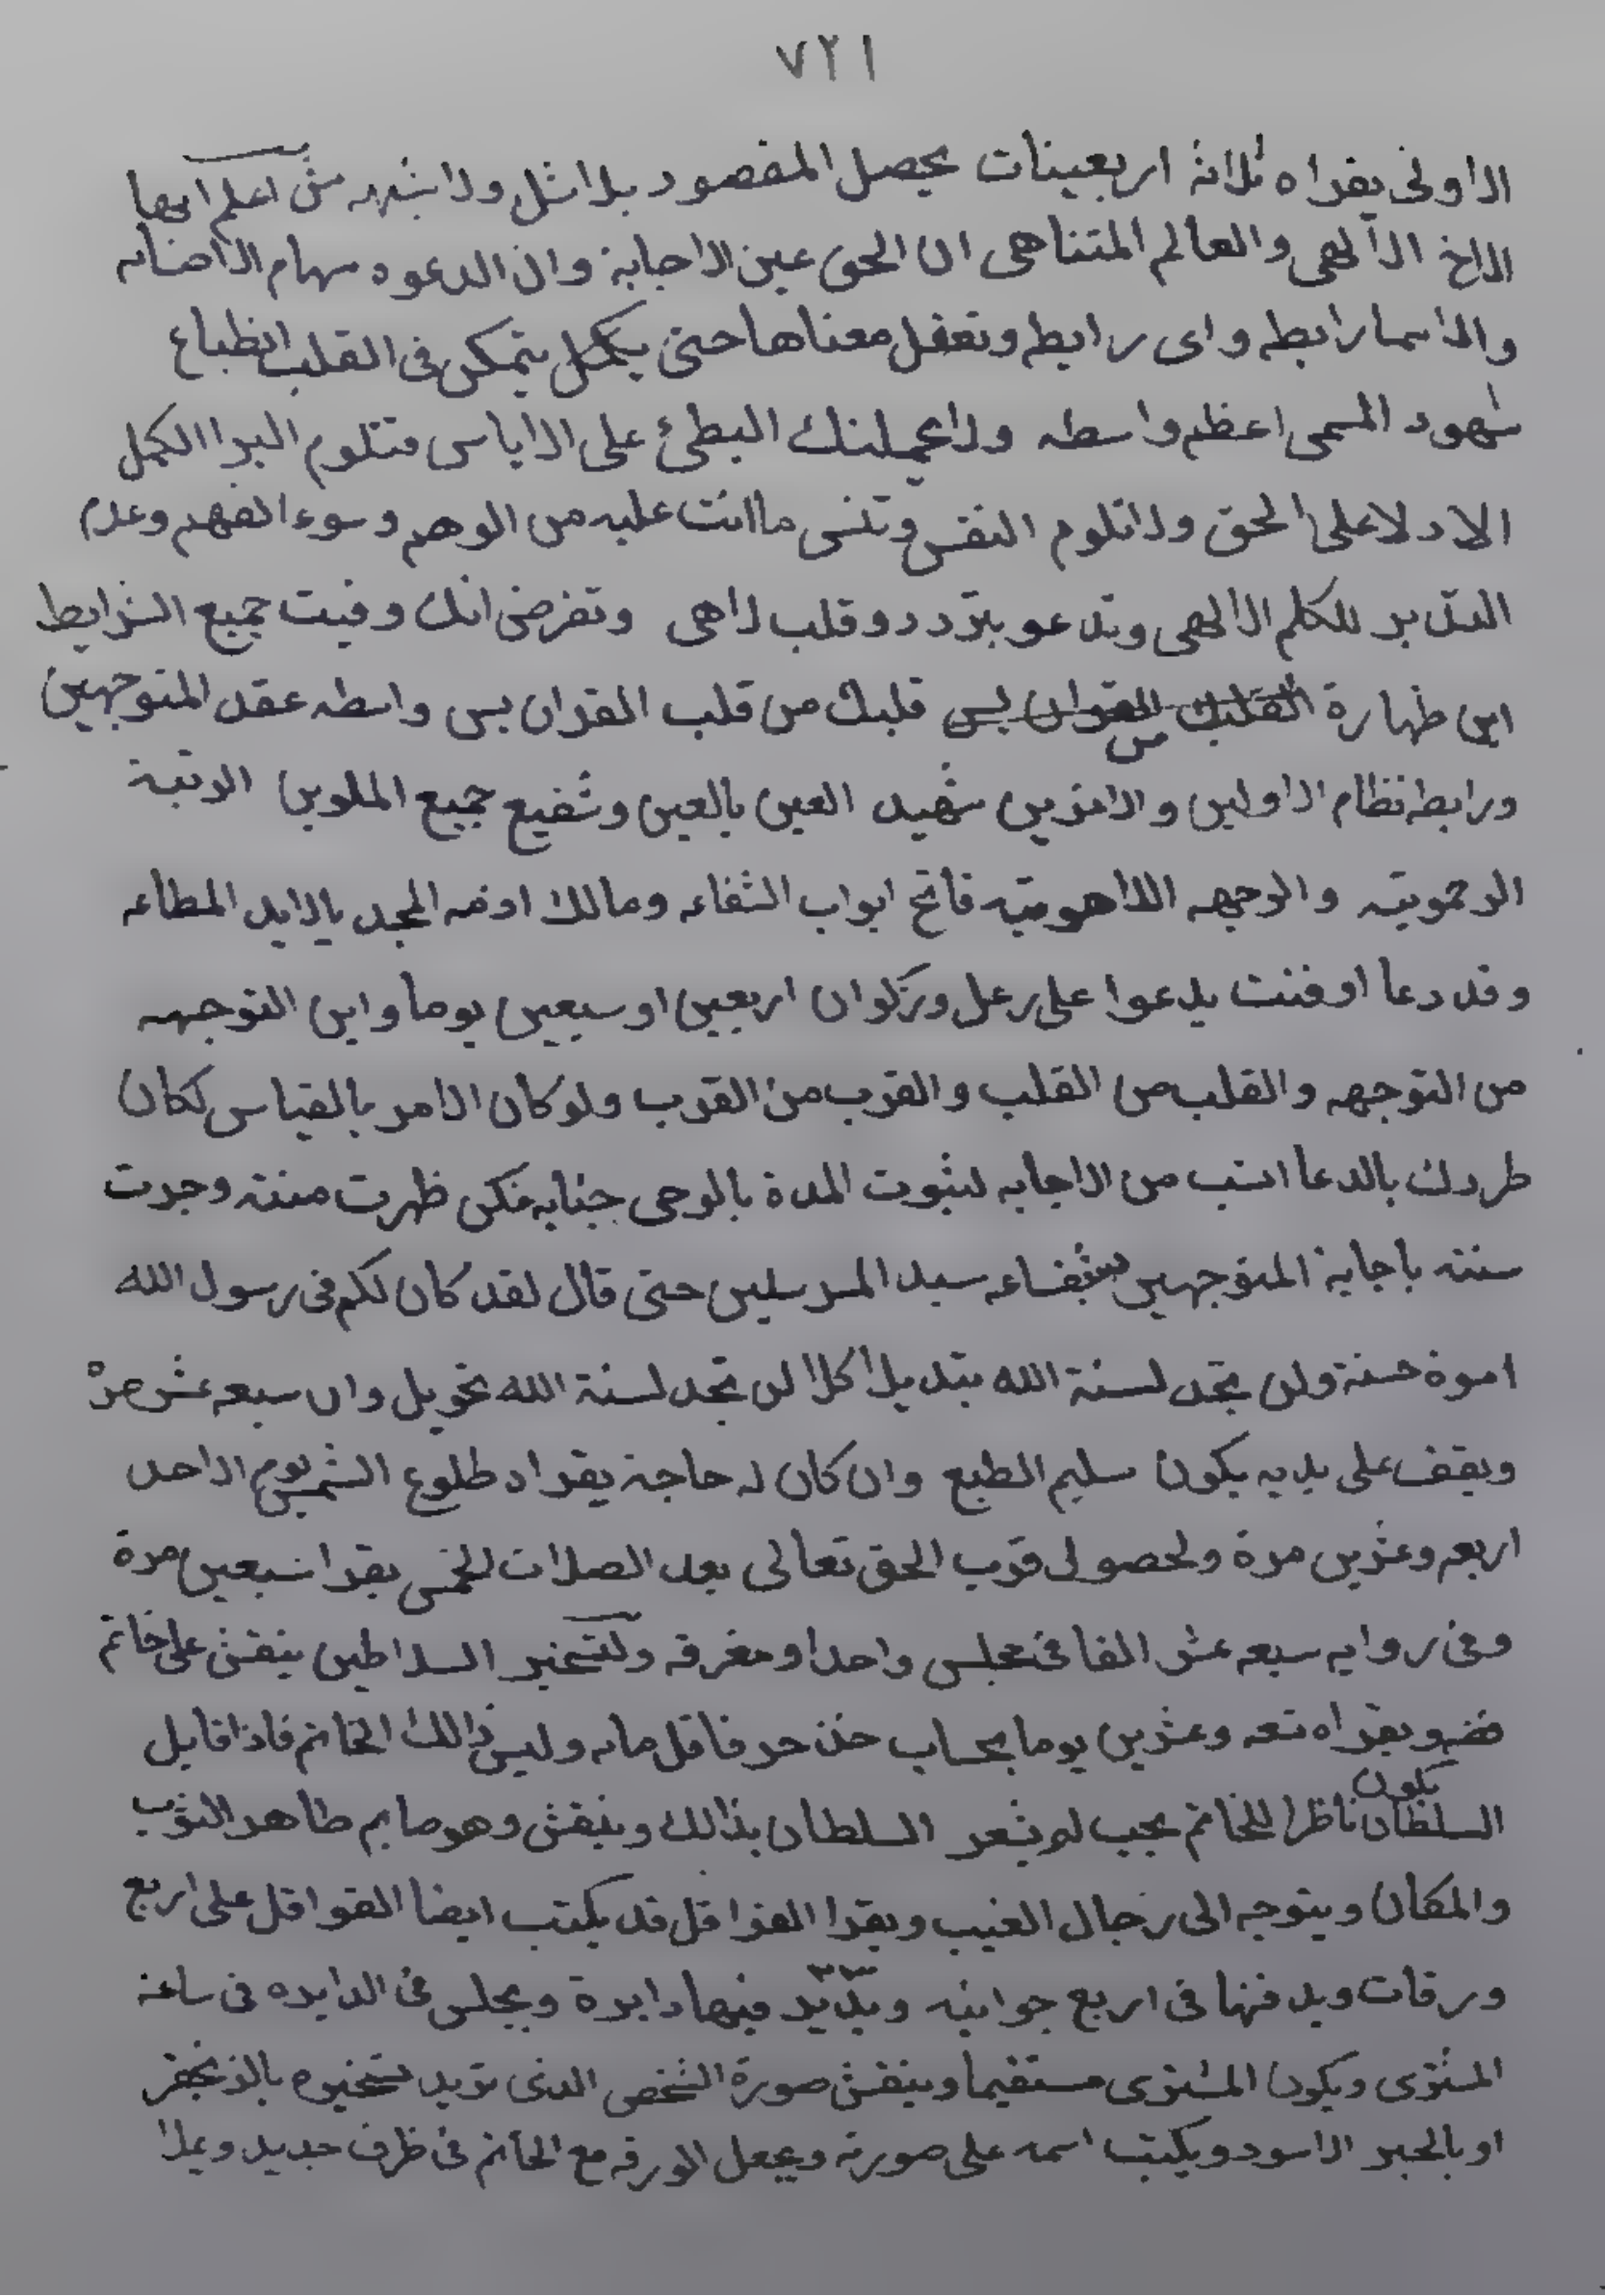 ٧٢١
الاولى يقراه ثلاثة اربعينات يحصل المقصود بلا شك ولا شبهه اعلم ايها
الاخ الالهى والعالم المتناهى ان الحق عين الاجابة وان الدعوه سهام الاصابه
والاسما رابطه واى رابطه وتعقل معناها حتى يكمل يتمكن فى القلب انطباع
شهود المسمى اعظم واسطه ولا يحملنك البطئ على الاياس فتلوم الكمل
الادلا على الحق ولا تلوم النفس وتنسى ما انت عليه من الوهم وسوء الفهم وعدم
التدبر للكلم الالهى وتدعو بتردد وقلب لاهى وتفرض انك وفيت جميع الشرايط
اين طهارة قلبك من قلب القران يس واسطه عقد المتوجهين
ورابطه نظام الاولين والاخرين شهيد العين بالعين وشفيع جميع الملوين الرتبة
الرحمويته والوجهه اللاهوتيه فاتح ابواب الشفاعه ومالك ازمه المجد بالايد المطاعه
وقد دعا اوقنت يدعوا على رعل وزكوان اربعين او سبعين يوما واين التوجهه
من التوجهه والقلب من القلب والقرب من القرب ولو كان الامر بالقياس لكان
طردك بالدعا انسب من الاجابه لثبوت المدة بالوحى جنابه لكن ظهرت مننه وجرت
سننه باجابة المتوجهين بشفاعه سيد المرسلين حتى قال لقد كان لكم فى رسول الله
اسوة حسنة ولن تجد لسنة الله تبديلا كلا لن تجد لسنة الله تحويل وان سبعه عشر مرة
ويقف على يديه يكون سليم الطبع وان كان له حاجة يقراد طلوع الشمس يوم الاحد
اربعه وعشرين مرة ولحصولى قرب الحق تعالى بعد الصلات الخمس يقرا سبعين مرة
وفى روايه سبعه عشر الفا فى مجلس واحدا ومغرقه ولتسخير السلاطين ينقش على خاتم
فضه ويقراه تسعه وعشرين يوما بحساب حرفا قل مايه وليس ذالك الخاتم فاذا قابل
السلطان يكون ناظرا للخاتم بحيث لم يشعر السلطان بذالك وينقش وهو صايم طاهر الثوب
والمكان ويتوجه الى رجال الغيب ويقرا القواقل قد يكتب ايضا القواقل على اربع
ورقات ويدفنها فى اربع جوانبه فيها دايرة ويجلس فى الدايره فى ساعة
المشترى ويكون المشترى مستقيما وينقش صورة الشخص الذى تريد تسخيره بالزنجفر
او بالحبر الاسود ويكتب اسمه على صورته ويجعل الورقه مع الخاتم فى ظرف جديد ويملا